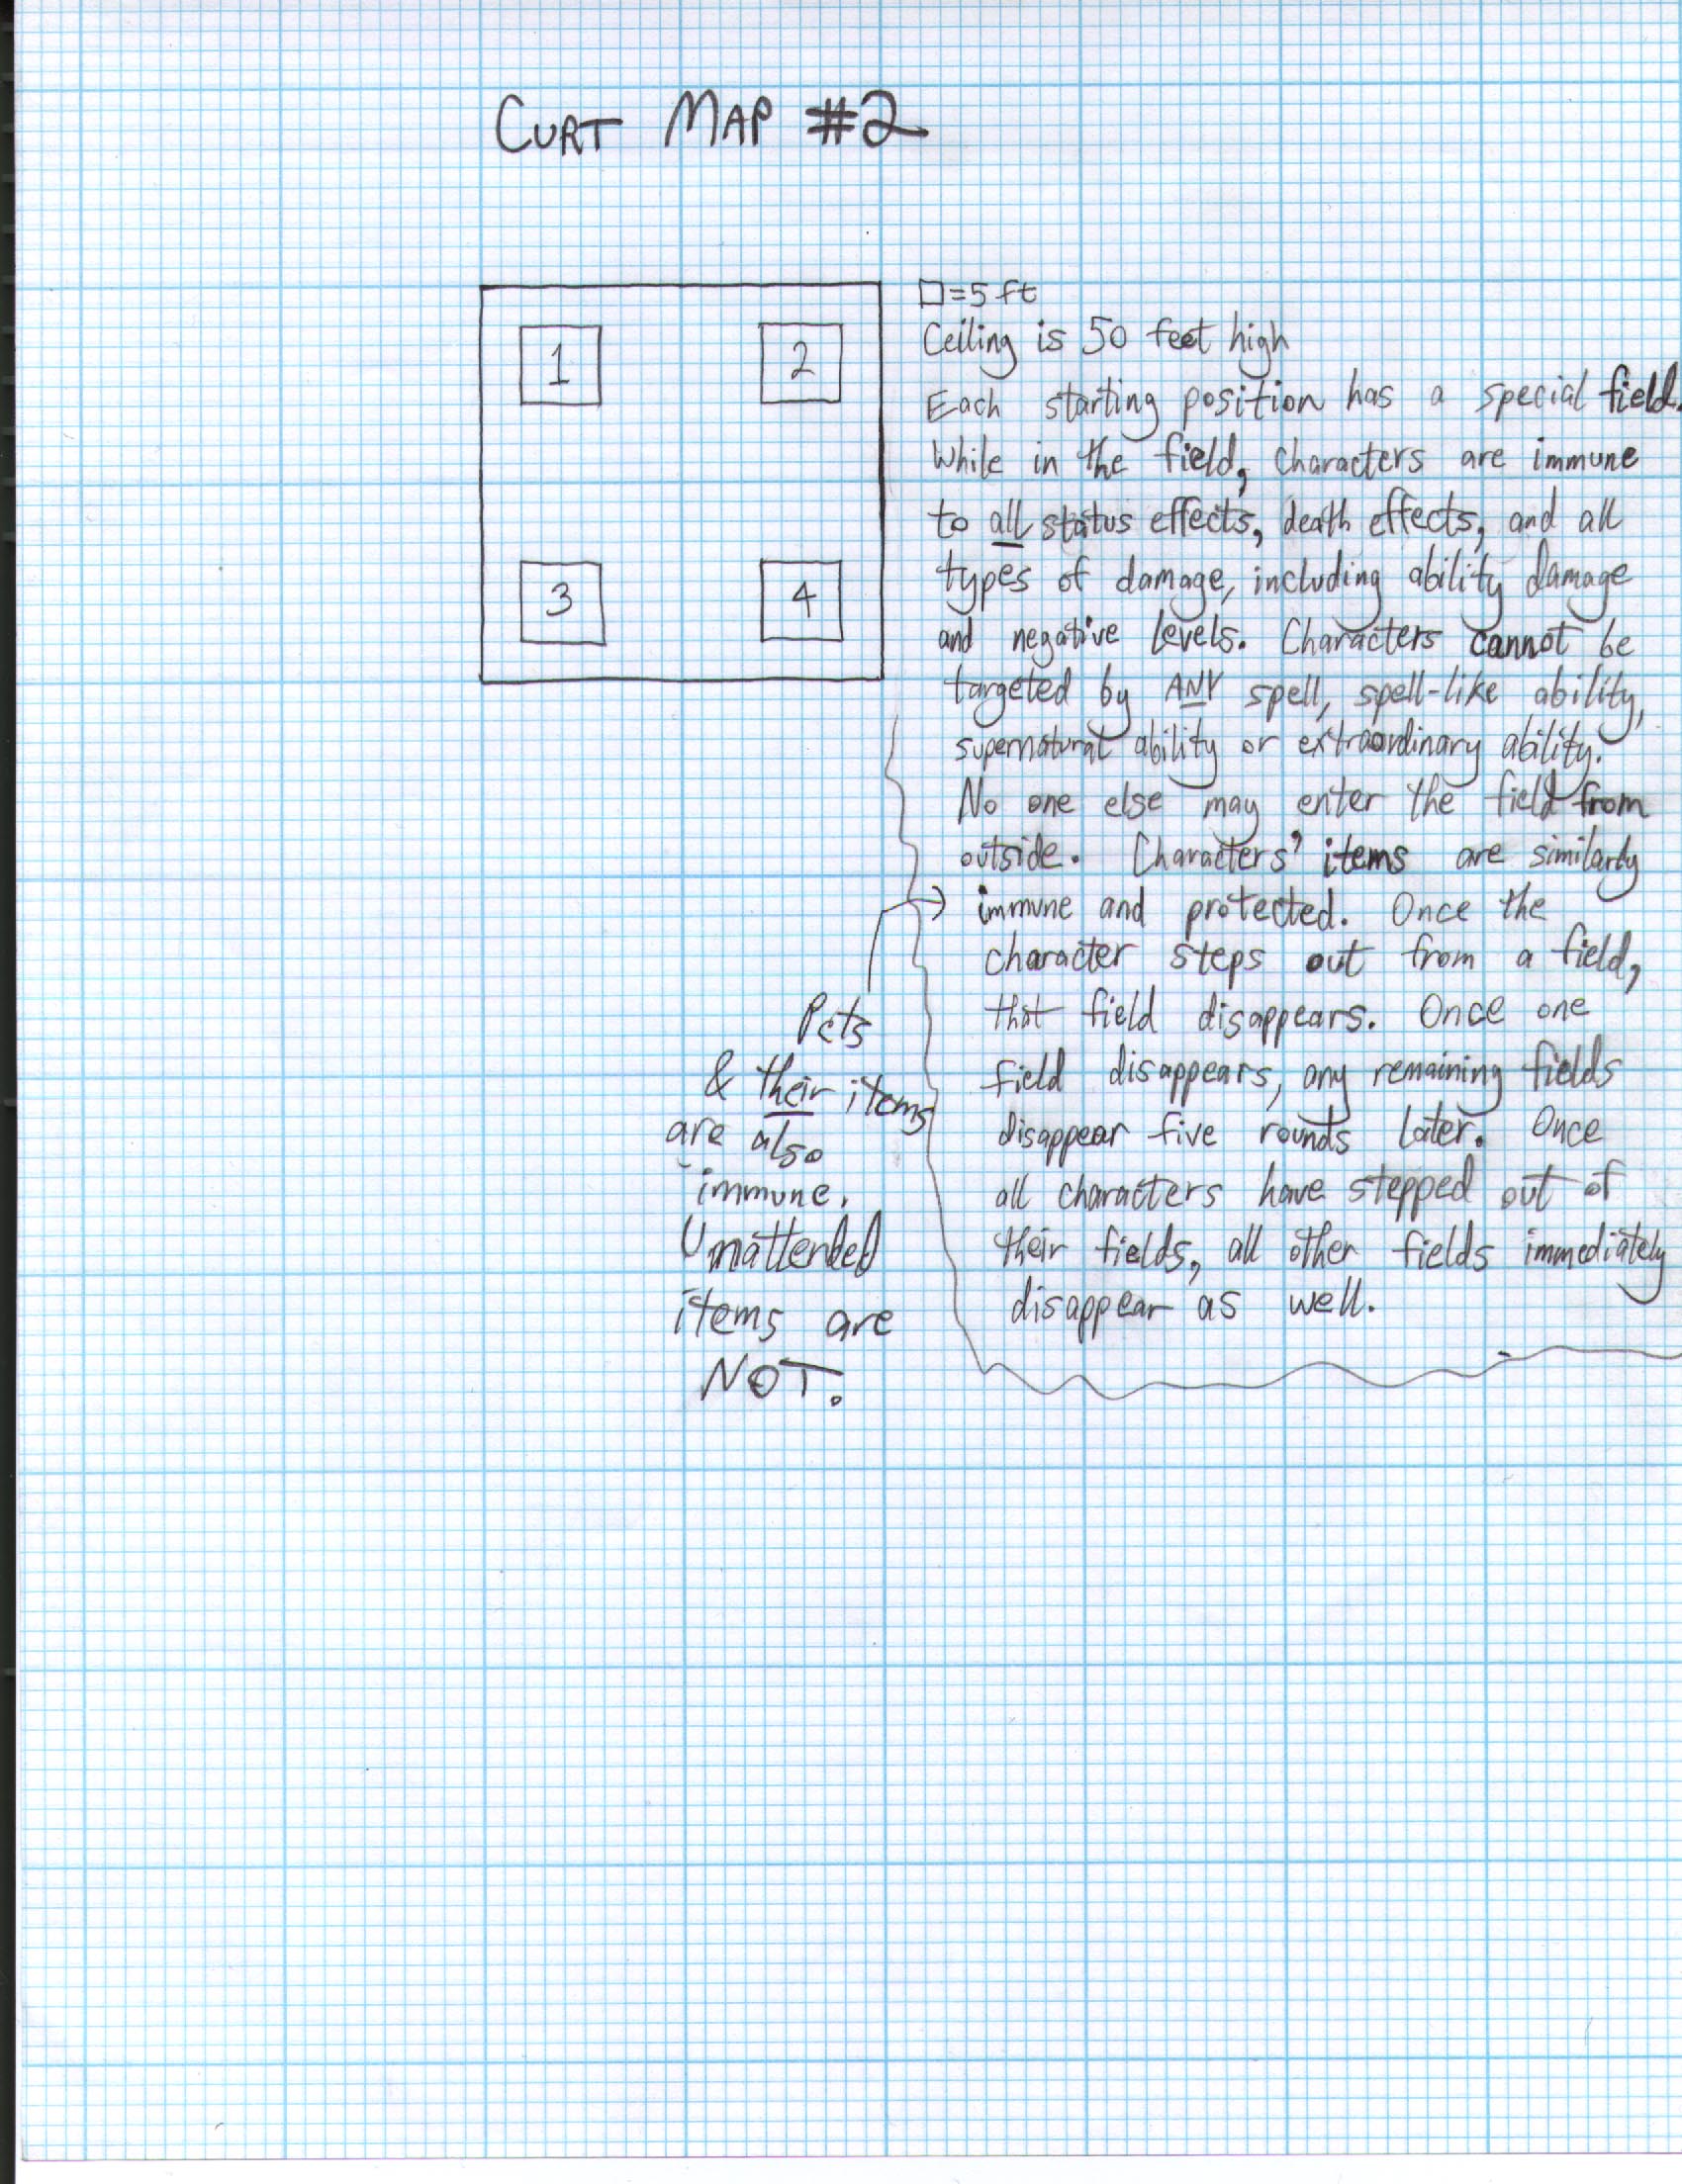 CURT MAP #2
1
2
3
4
□=5 ft
Ceiling is 50 feet high
Each starting position has a special field.
While in the field, characters are immune
to all status effects, death effects, and all
types of damage, including ability damage
and negative levels. Characters cannot be
targeted by ANY spell, spell-like ability,
supernatural ability or extraordinary ability.
No one else may enter the field from
outside. Characters' items are similarly
immune and protected. Once the
character steps out from a field,
that field disappears. Once one
field disappears, any remaining fields
disappear five rounds later. Once
all characters have stepped out of
their fields, all other fields immediately
disappear as well.
Pets
& their items
are also
immune.
Unattended
items are
NOT.